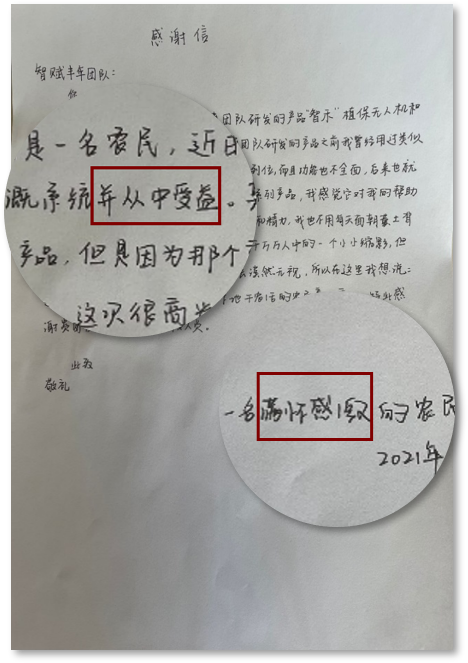 感谢信
智赋丰车团队：
你
团队研发的产品“智禾”植保无人机和
是一名农民，近日
团队研发的产品之前我曾经用过类似
到位，而且功能也不全面，后来也就
溉系统并从中受益。
系列产品，我感觉它对我的帮助
和精力，我也不用每天面朝黄土背
产品，但是因为那个
千万万人中的一个小小缩影，但
漠然无视，所以在这里我想说：
这次很高兴
谢贵
人员．
此致
敬礼
一名满怀感激的农民
2021年